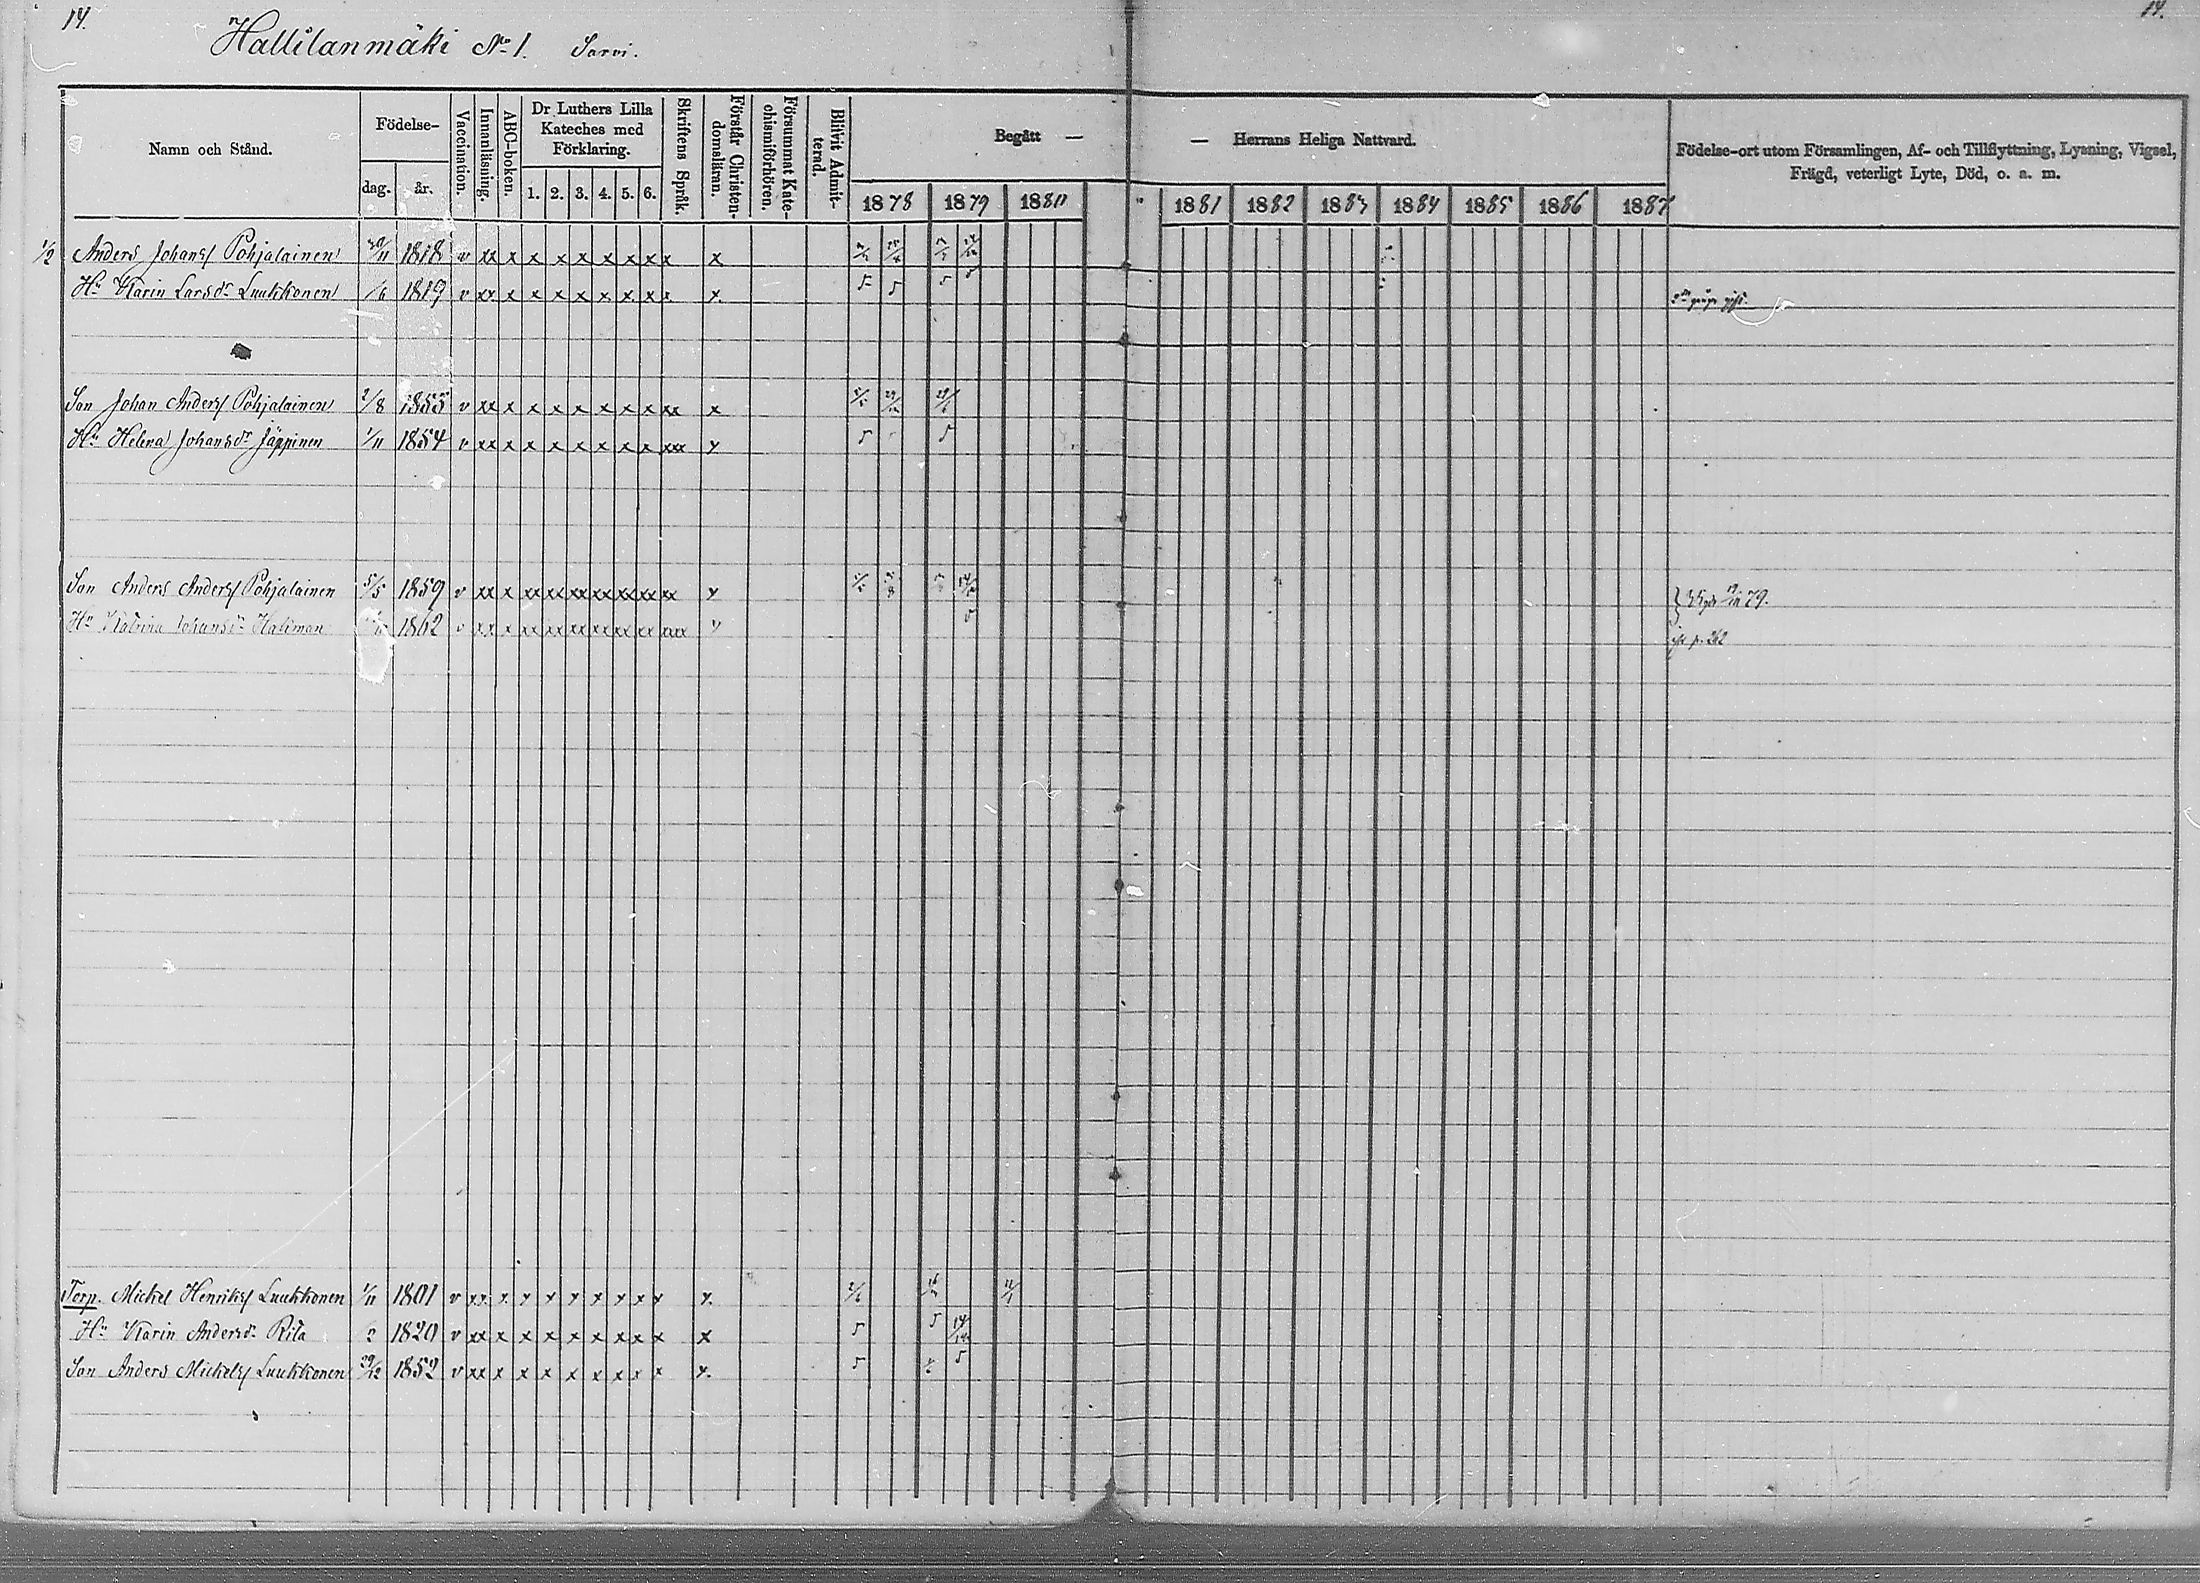 14.
14.
Hallilanmäki No 1. Sarvi.
Namn och Stånd.
Födelse-
dag.
år.
Vaccination.
Innanläsning.
ABC-boken.
Dr Luthers Lilla
Kateches med
Förklaring.
1. 2. 3. 4. 5. 6.
Skriftens Språk.
Förstår Christen-
domsläran.
Försummat Kate-
chismiförhören.
Blifvit Admit-
terad.
Begått —
— Herrans Heliga Nattvard.
1878 1879 1880 1881 1882 1883 1884 1885 1886 1887
Födelse-ort utom Församlingen, Af- och Tillflyttning, Lysning, Vigsel,
Frägd, veterligt Lyte, Död, o. a. m.
1/2 Anders Johanss Pohjalainen 1818 v xx x x x x x x x x x
Hu Karin Larsdr Luukkonen /6 1819 v xx x x x x x x x x x
5 5 5 5
Son Johan Anderss Pohjalainen 2/8 1855 v xx x x x x x x x xx x
Hu Helena Johansdr Jäppinen 1/11 1854 v xx x x x x x x x xxx x
5 5
Son Anders Anderss Pohjalainen 5/5 1859 v xx x xx xx xx xx xx xx xx x
Hu Katrina Johansdr Kaliman 1862 v xx x xx xx xx xx xx xx xxx
5
79.
p. 262
Torp. Mickel Henrikss Luukkonen 1/11 1801 v xx x x x x x x x x x
Hu Karin Andersdr Rita 2 1820 v xx x x x x x x x x x
5 5 14/12
Son Anders Mickelss Luukkonen 29/12 1852 v xx x x x x x x x x x
5 5